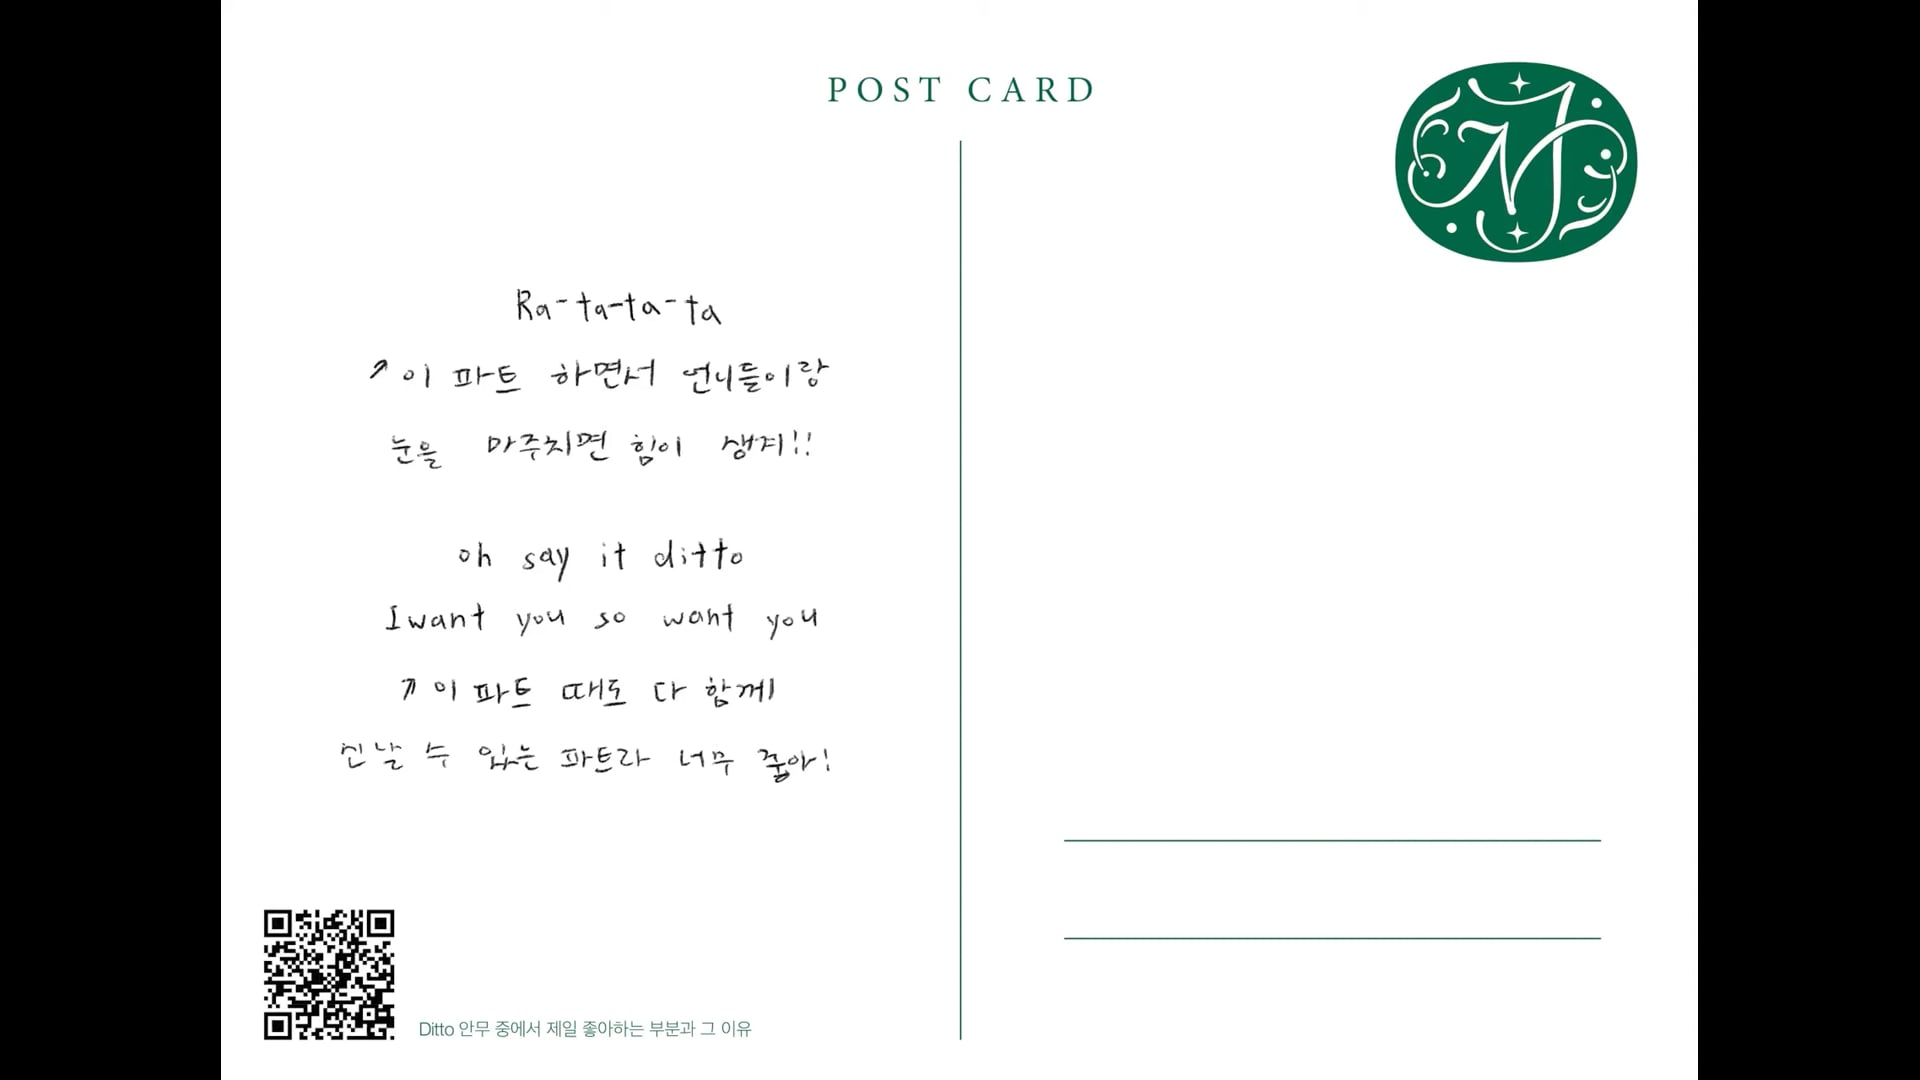 POST CARD
Ra-ta-ta-ta
↗이 파트 하면서 언니들이랑
눈을 마주치면 힘이 생겨!!
oh say it ditto
I want you so want you
↗이 파트 때도 다 함께
신날 수 있는 파트라 너무 좋아!
Ditto 안무 중에서 제일 좋아하는 부분과 그 이유